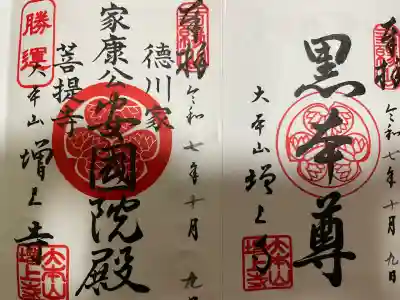 奉拝
黒本尊
大本山 増上寺
令和七年十月九日
大本山
増上寺
奉拝
徳川家
家康公
安國院殿
菩提寺
勝運
大本山 増上寺
令和七年十月九日
大本山
増上寺